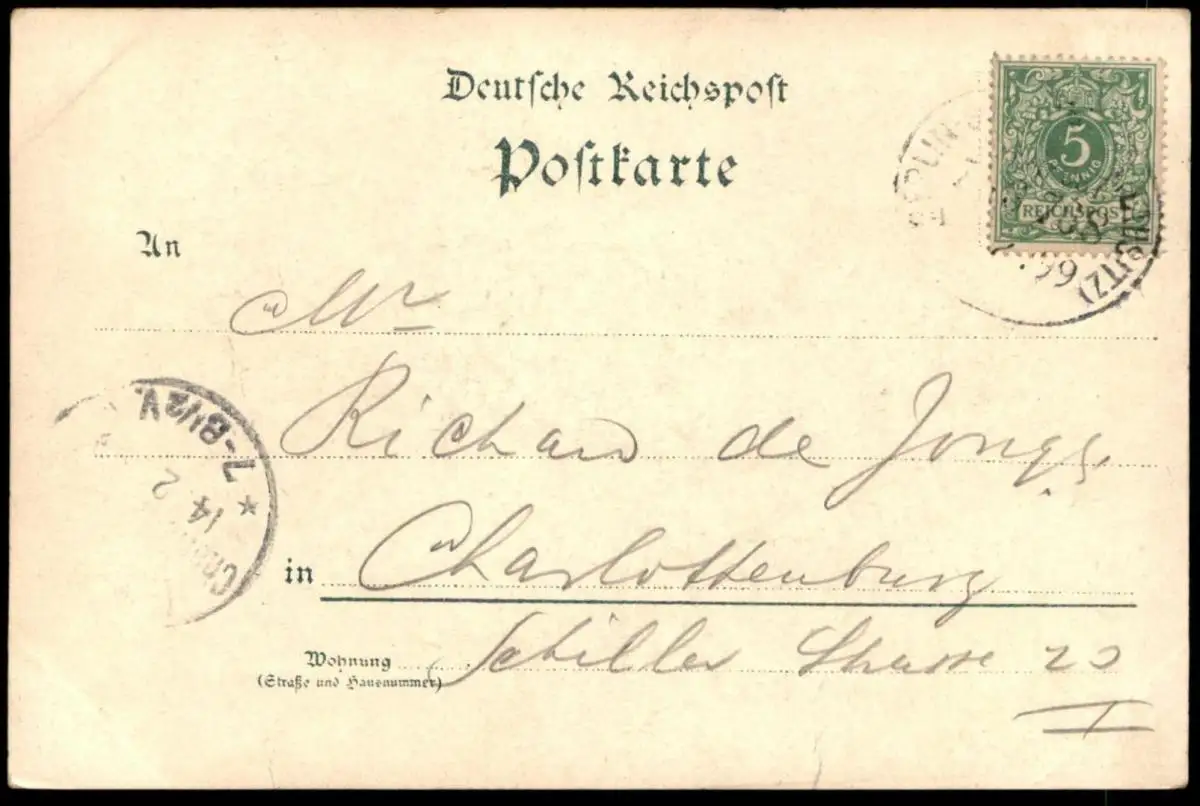 Deutsche Reichspost
Postkarte
5
PFENNIG
REICHSPOST
99
An
Mr
Richard de Jonge
7-8½V.
14 2
in Charlottenburg
Wohnung Schiller Strasse 20
(Straße und Hausnummer)
I